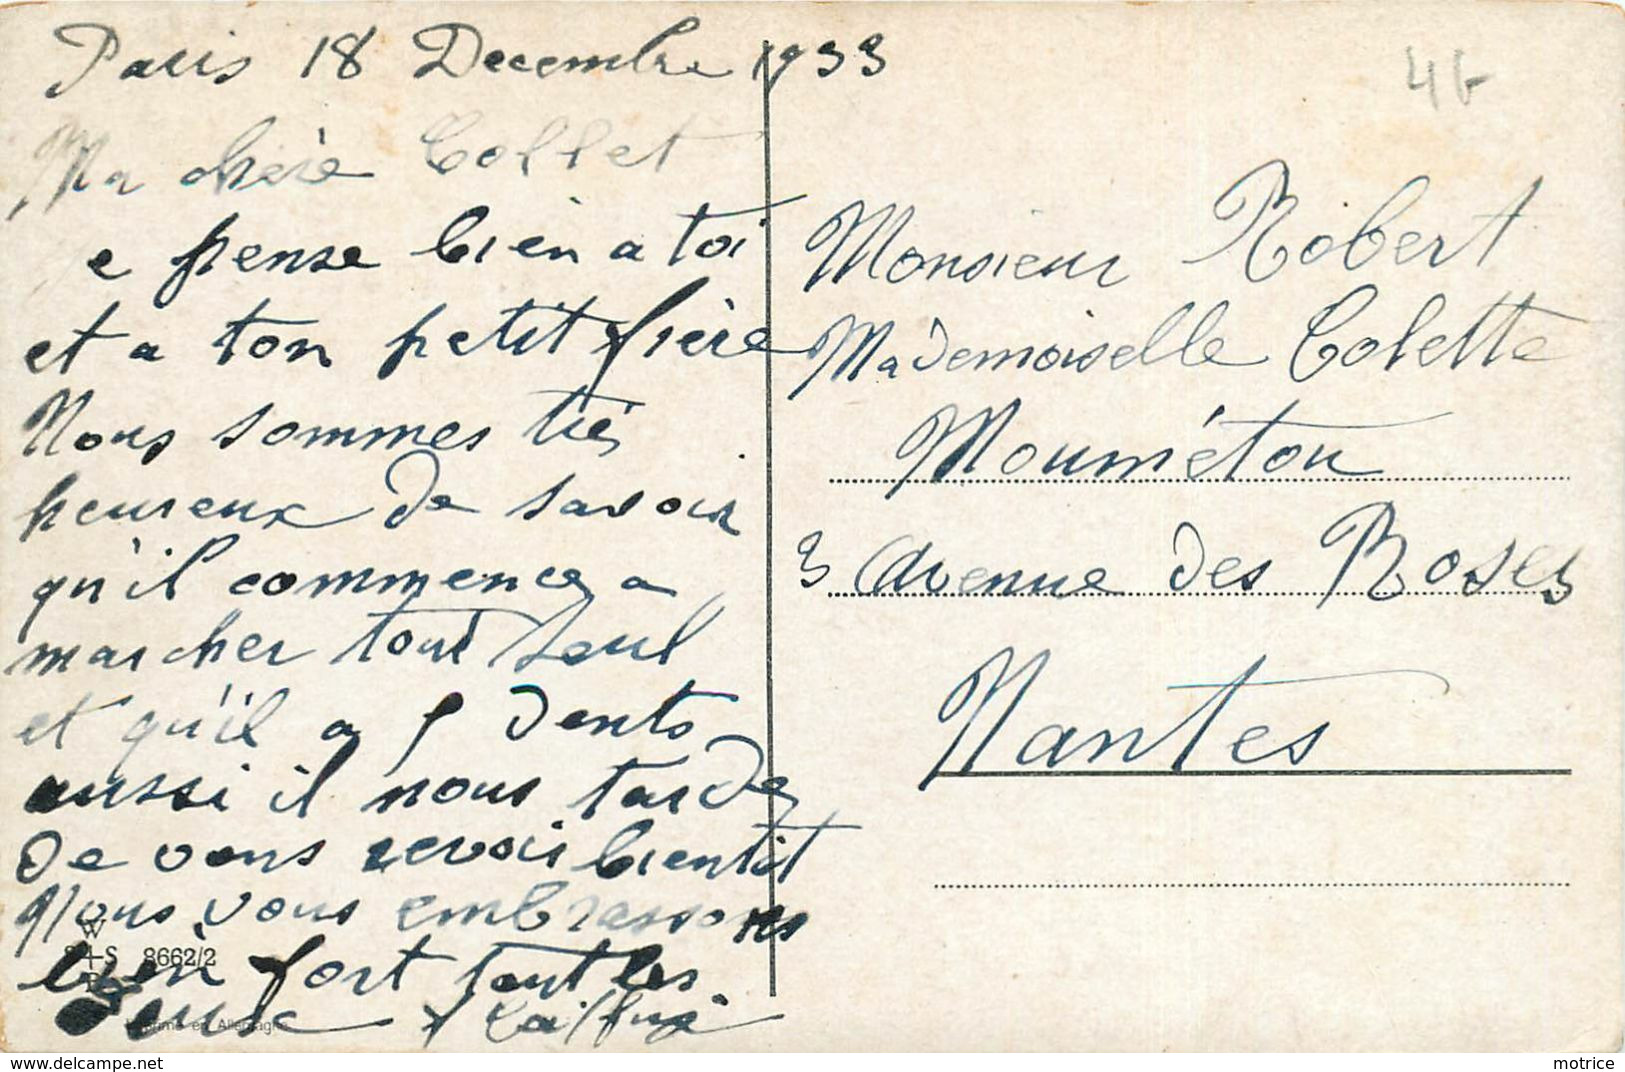 Paris 18 Decembre 1933
Ma chère Collet
e pense bien a toi
et a ton petit frère
Nous sommes très
heureux de savoir
qu'il commence a
marcher tout seul
et qu'il a 5 dents
aussi il nous tarde
de vous revoir bientôt
Nous vous embrassons
bien fort tout les
deux
W
S+S 8662/2
Imprimé en Allemagne
4F
Monsieur Robert
Mademoiselle Colette
Mouméton
3 Avenue des Roses
Nantes
motrice